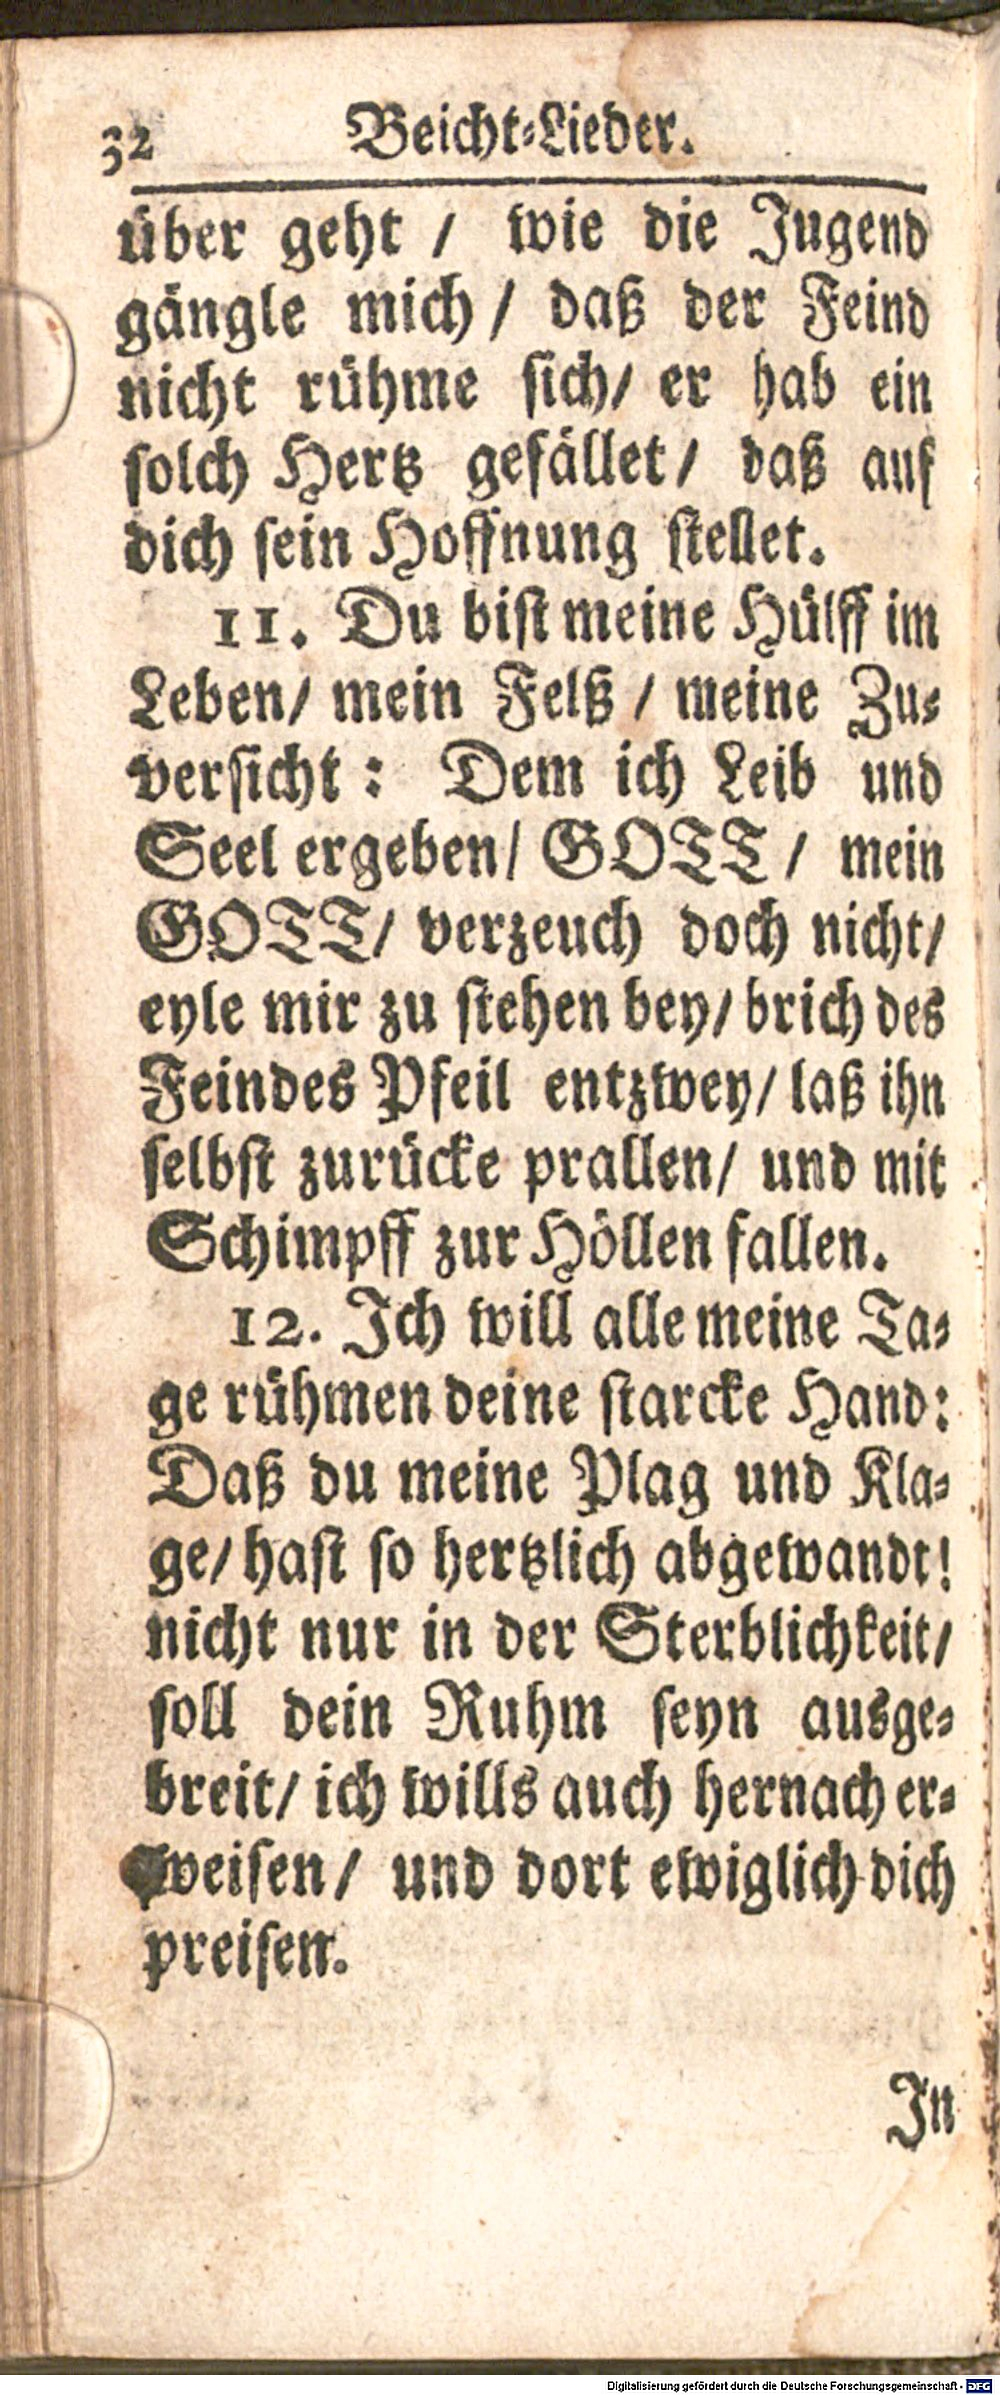 32 Beicht-Lieder.
über geht / wie die Jugend
gängle mich / daß der Feind
nicht rühme sich/ er hab ein
solch Hertz gefället/ daß auf
dich sein Hoffnung stellet.
11. Du bist meine Hülff im
Leben/ mein Felß / meine Zu-
versicht: Dem ich Leib und
Seel ergeben/ GOTT / mein
GOTT/ verzeuch doch nicht/
eyle mir zu stehen bey/ brich des
Feindes Pfeil entzwey/ laß ihn
selbst zurücke prallen/ und mit
Schimpff zur Höllen fallen.
12. Ich will alle meine Ta-
ge rühmen deine starcke Hand:
Daß du meine Plag und Kla-
ge/ hast so hertzlich abgewandt!
nicht nur in der Sterblichkeit/
soll dein Ruhm seyn ausge-
breit/ ich wills auch hernach er-
weisen/ und dort ewiglich dich
preisen.
In
Digitalisierung gefördert durch die Deutsche Forschungsgemeinschaft - DFG